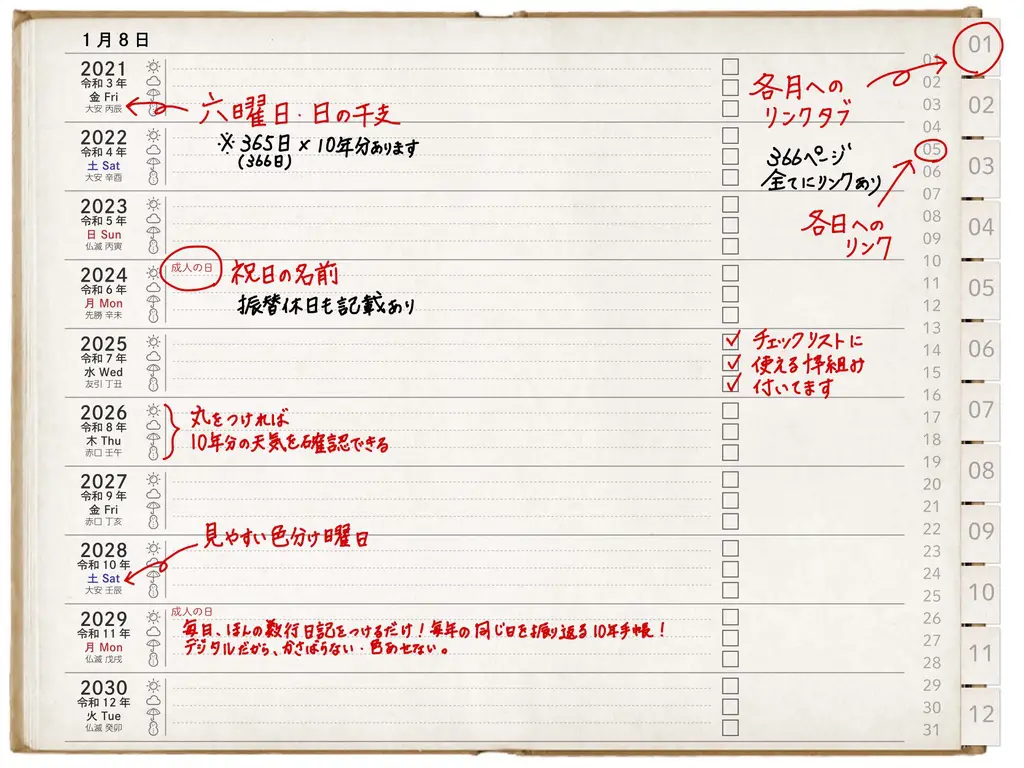 1月8日
2021
令和3年
金 Fri
大安 丙辰
六曜日・日の干支
2022
令和4年
土 Sat
大安 辛酉
※365日×10年分あります
(366日)
2023
令和5年
日 Sun
仏滅 丙寅
2024
令和6年
月 Mon
先勝 辛未
成人の日
祝日の名前
振替休日も記載あり
2025
令和7年
水 Wed
友引 丁丑
チェックリストに
使える枠組み
付いてます
2026
令和8年
木 Thu
赤口 壬午
丸をつければ
10年分の天気を確認できる
2027
令和9年
金 Fri
赤口 丁亥
2028
令和10年
土 Sat
大安 壬辰
見やすい色分け曜日
2029
令和11年
月 Mon
仏滅 戊戌
成人の日
毎日、ほんの数行日記をつけるだけ!毎年の同じ日を振り返る10年手帳!
デジタルだから、かさばらない・色あせない。
2030
令和12年
火 Tue
仏滅 癸卯
各月への
リンクタブ
366ページ
全てにリンクあり
各日への
リンク
01
02
03
04
05
06
07
08
09
10
11
12
13
14
15
16
17
18
19
20
21
22
23
24
25
26
27
28
29
30
31
01
02
03
04
05
06
07
08
09
10
11
12